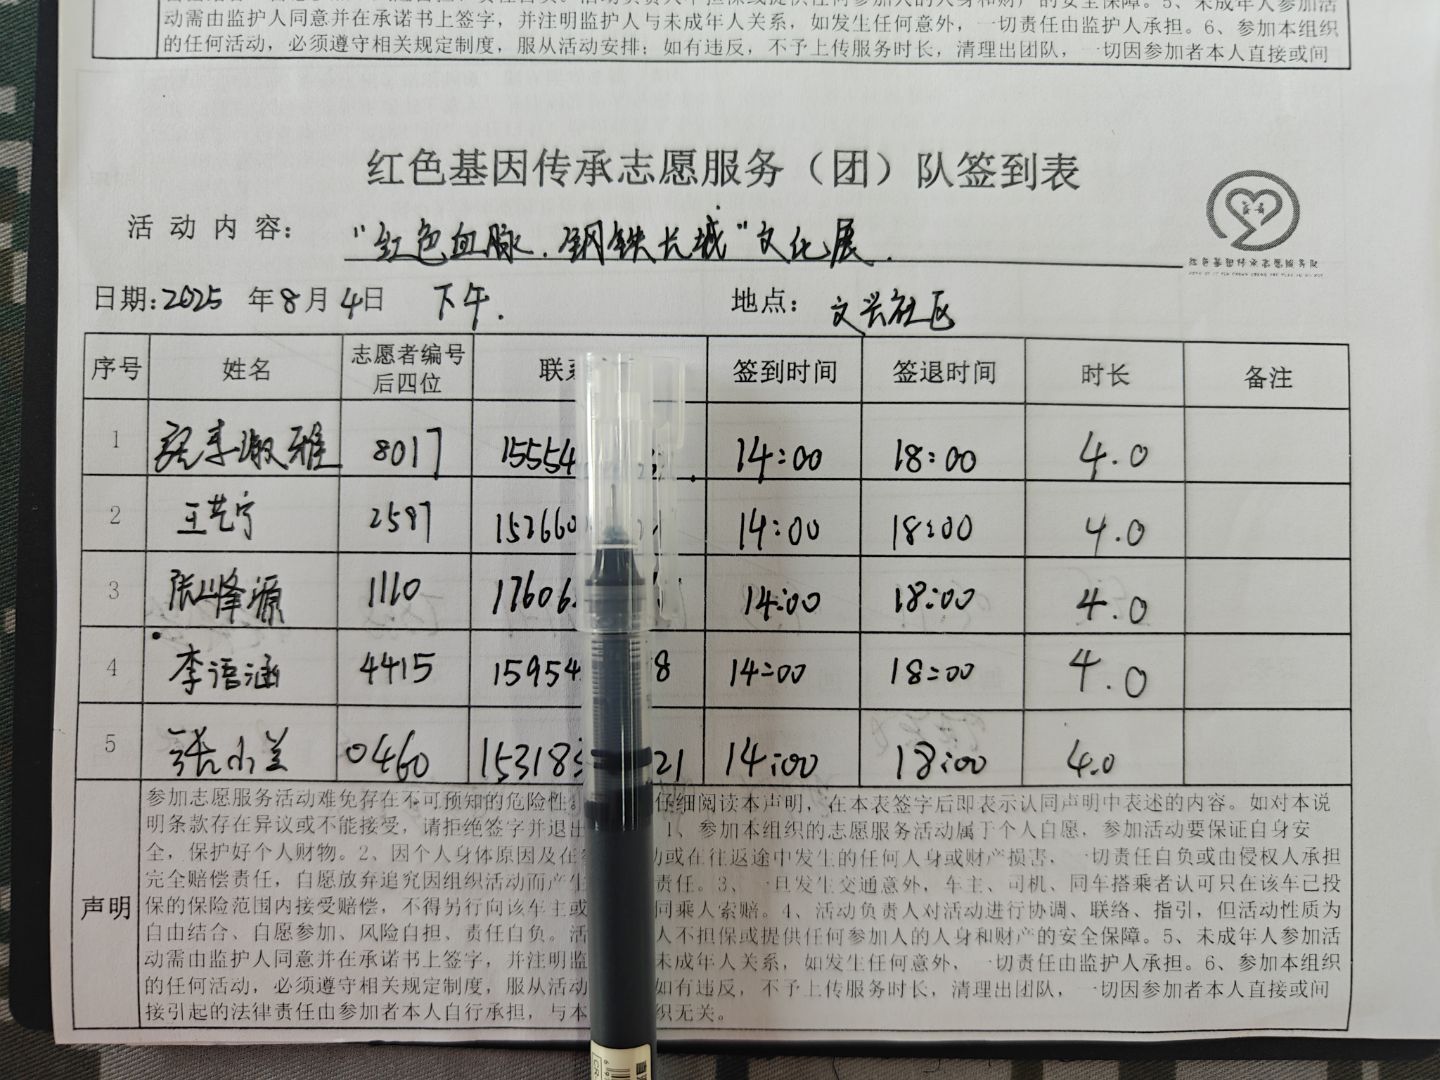 动需由监护人同意并在承诺书上签字，并注明监护人与未成年人关系，如发生任何意外，一切责任由监护人承担。6、参加本组织
的任何活动，必须遵守相关规定制度，服从活动安排；如有违反，不予上传服务时长，清理出团队，一切因参加者本人直接或间
红色基因传承志愿服务（团）队签到表
活动内容： “红色血脉.钢铁长城”文化展.
日期:2025 年8月4日 下午. 地点： 文兴社区
序号 姓名 志愿者编号后四位 联系 签到时间 签退时间 时长 备注
1 张李淑雅 8017 15554 14:00 18:00 4.0
2 王艺宁 2597 15266 14:00 18:00 4.0
3 张峰源 1110 17606 14:00 18:00 4.0
4 李语涵 4415 15954 8 14:00 18:00 4.0
5 张小兰 0460 15318 21 14:00 18:00 4.0
声明
参加志愿服务活动难免存在不可预知的危险性。 仔细阅读本声明，在本表签字后即表示认同声明中表述的内容。如对本说
明条款存在异议或不能接受，请拒绝签字并退出 1、参加本组织的志愿服务活动属于个人自愿，参加活动要保证自身安
全，保护好个人财物。2、因个人身体原因及在 动或在往返途中发生的任何人身或财产损害，一切责任自负或由侵权人承担
完全赔偿责任，自愿放弃追究因组织活动而产生 责任。3、一旦发生交通意外，车主、司机、同车搭乘者认可只在该车已投
保的保险范围内接受赔偿，不得另行向该车主或 同乘人索赔。4、活动负责人对活动进行协调、联络、指引，但活动性质为
自由结合、自愿参加、风险自担、责任自负。活 人不担保或提供任何参加人的人身和财产的安全保障。5、未成年人参加活
动需由监护人同意并在承诺书上签字，并注明监 未成年人关系，如发生任何意外，一切责任由监护人承担。6、参加本组织
的任何活动，必须遵守相关规定制度，服从活动 如有违反，不予上传服务时长，清理出团队，一切因参加者本人直接或间
接引起的法律责任由参加者本人自行承担，与本 织无关。